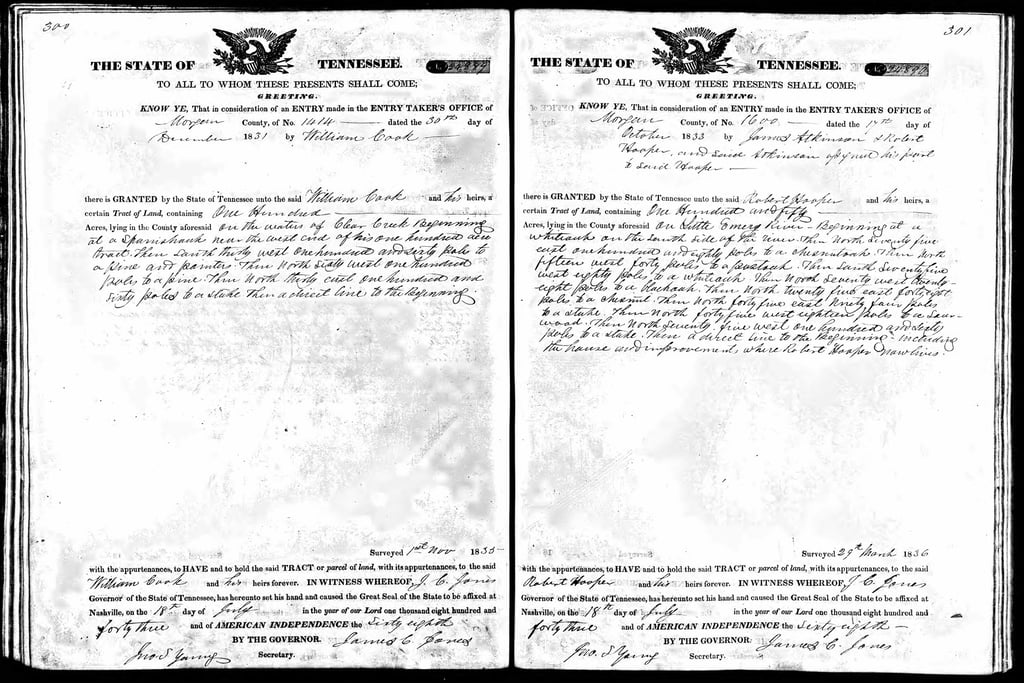 300
THE STATE OF TENNESSEE.
TO ALL TO WHOM THESE PRESENTS SHALL COME;
GREETING.
KNOW YE, That in consideration of an ENTRY made in the ENTRY TAKER'S OFFICE of
Morgan County, of No. 1414 dated the 30th day of
December 1831 by William Cook
there is GRANTED by the State of Tennessee unto the said William Cook and his heirs, a
certain Tract of Land, containing One Hundred
Acres, lying in the County aforesaid on the waters of Clear Creek Beginning
at a Spanishoak near the west end of his one hundred acre
tract. Then South thirty west one hundred and sixty poles to
a pine and pointers. Then North sixty west one hundred
poles to a pine. Then North thirty east one hundred and
sixty poles to a stake Then a direct line to the Beginning
Surveyed 1st Nov 1835
with the appurtenances, to HAVE and to hold the said TRACT or parcel of land, with its appurtenances, to the said
William Cook and his heirs forever. IN WITNESS WHEREOF, J. C. Jones
Governor of the State of Tennessee, has hereunto set his hand and caused the Great Seal of the State to be affixed at
Nashville, on the 18th day of July in the year of our Lord one thousand eight hundred and
forty three and of AMERICAN INDEPENDENCE the Sixty eighth
BY THE GOVERNOR. James C. Jones
Jno. S. Young Secretary.
301
THE STATE OF TENNESSEE.
TO ALL TO WHOM THESE PRESENTS SHALL COME;
GREETING.
KNOW YE, That in consideration of an ENTRY made in the ENTRY TAKER'S OFFICE of
Morgan County, of No. 1600 dated the 17th day of
October 1833 by James Atkinson & Robert
Hooper, and said Atkinson his part
to said Hooper
there is GRANTED by the State of Tennessee unto the said Robert Hooper and his heirs, a
certain Tract of Land, containing One Hundred and fifty
Acres, lying in the County aforesaid on Little Emery River - Beginning at a
whiteoak on the South side of the river Then North Seventy five
east one hundred and eighty poles to a chesnutoak Then North
fifteen west forty poles to a postoak. Then South Seventy five
west eighty poles to a whiteoak Then North Seventy west twenty-
eight poles to a Blackoak. Then North twenty five east forty eight
poles to a chesnut. Then North forty five east Ninety four poles
to a stake. Then North forty five west eighteen poles to a Sour-
wood. Then North Seventy five west one hundred and sixty
poles to a stake. Then a direct line to the Beginning - including
the house and improvements where Robert Hooper now lives.
Surveyed 29th March 1836
with the appurtenances, to HAVE and to hold the said TRACT or parcel of land, with its appurtenances, to the said
Robert Hooper and his heirs forever. IN WITNESS WHEREOF, J. C. Jones
Governor of the State of Tennessee, has hereunto set his hand and caused the Great Seal of the State to be affixed at
Nashville, on the 18th day of July in the year of our Lord one thousand eight hundred and
forty three and of AMERICAN INDEPENDENCE the sixty eighth
BY THE GOVERNOR. James C. Jones
Jno. S. Young Secretary.